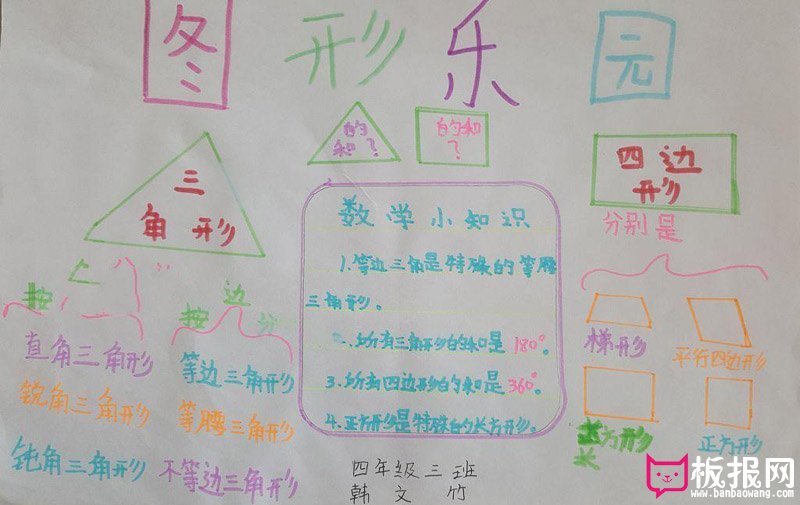 图形乐园
的
和?
的和
?
三
角形
四边
形
分别是
数学小知识
1.等边三角是特殊的等腰
三角形。
2.所有三角形的和是180°。
3.所有四边形的和是360°。
4.正方形是特殊的长方形。
按
按边分
直角三角形
锐角三角形
钝角三角形
等边三角形
等腰三角形
不等边三角形
梯形
平行四边形
长方形
长
正方形
四年级三班
韩文竹
板报网
www.banbaowang.com